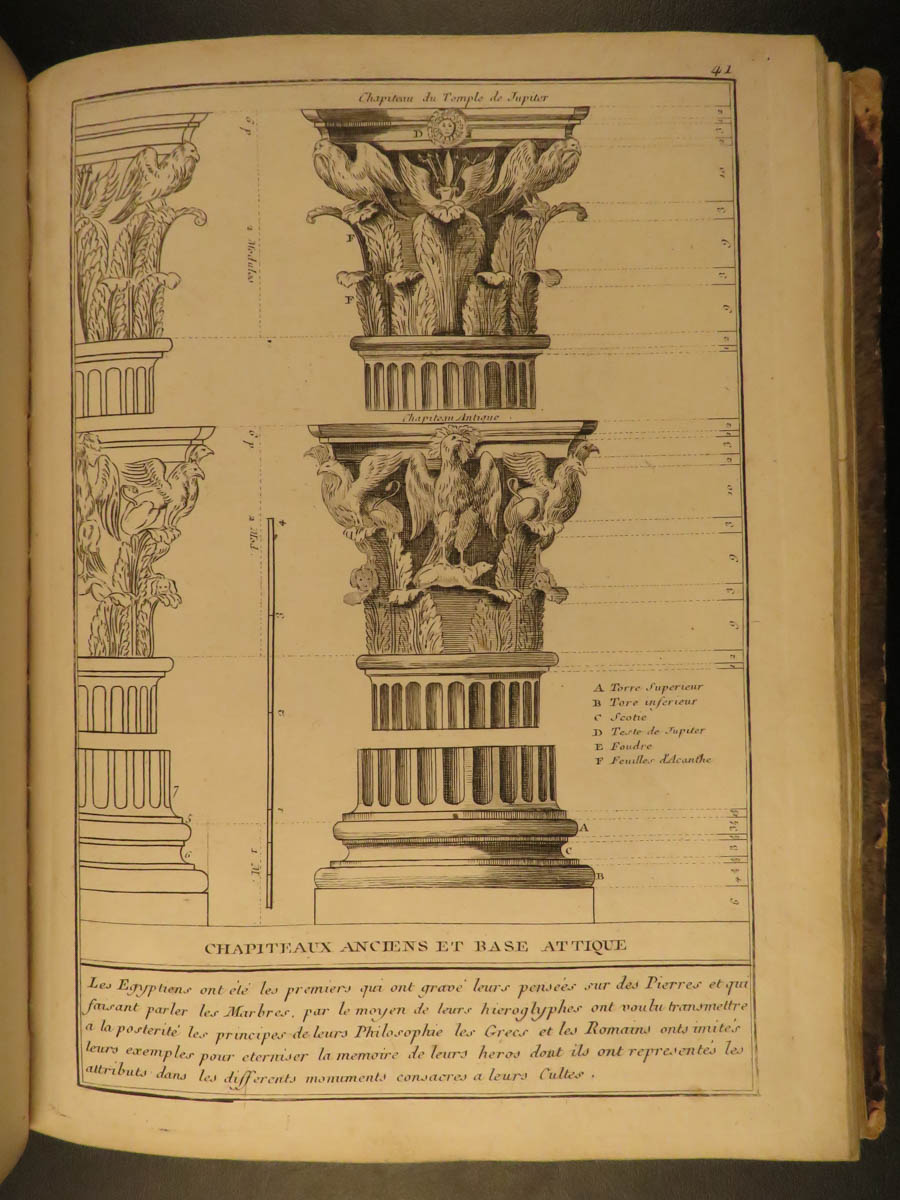 41
Chapiteau du Temple de Jupiter
D
6 p
2 Modules
F
F
Chapiteau Antique.
6 p
2 Mod.
4
3
2
1
A Torre Superieur
B Tore inferieur
C Scotie
D Teste de Jupiter
E Foudre
F Feuilles d'Acanthe
7
5
6
1 M.
A
C
B
CHAPITEAUX ANCIENS ET BASE ATTIQUE
Les Egyptiens ont été les premiers qui ont gravé leurs pensées sur des Pierres et qui
faisant parler les Marbres, par le moyen de leurs hieroglyphes ont voulu transmettre
a la posterité les principes de leurs Philosophie les Grecs et les Romains onts imités
leurs exemples pour eterniser la memoire de leurs heros dont ils ont representés les
attributs dans les differents monuments consacres a leurs Cultes.